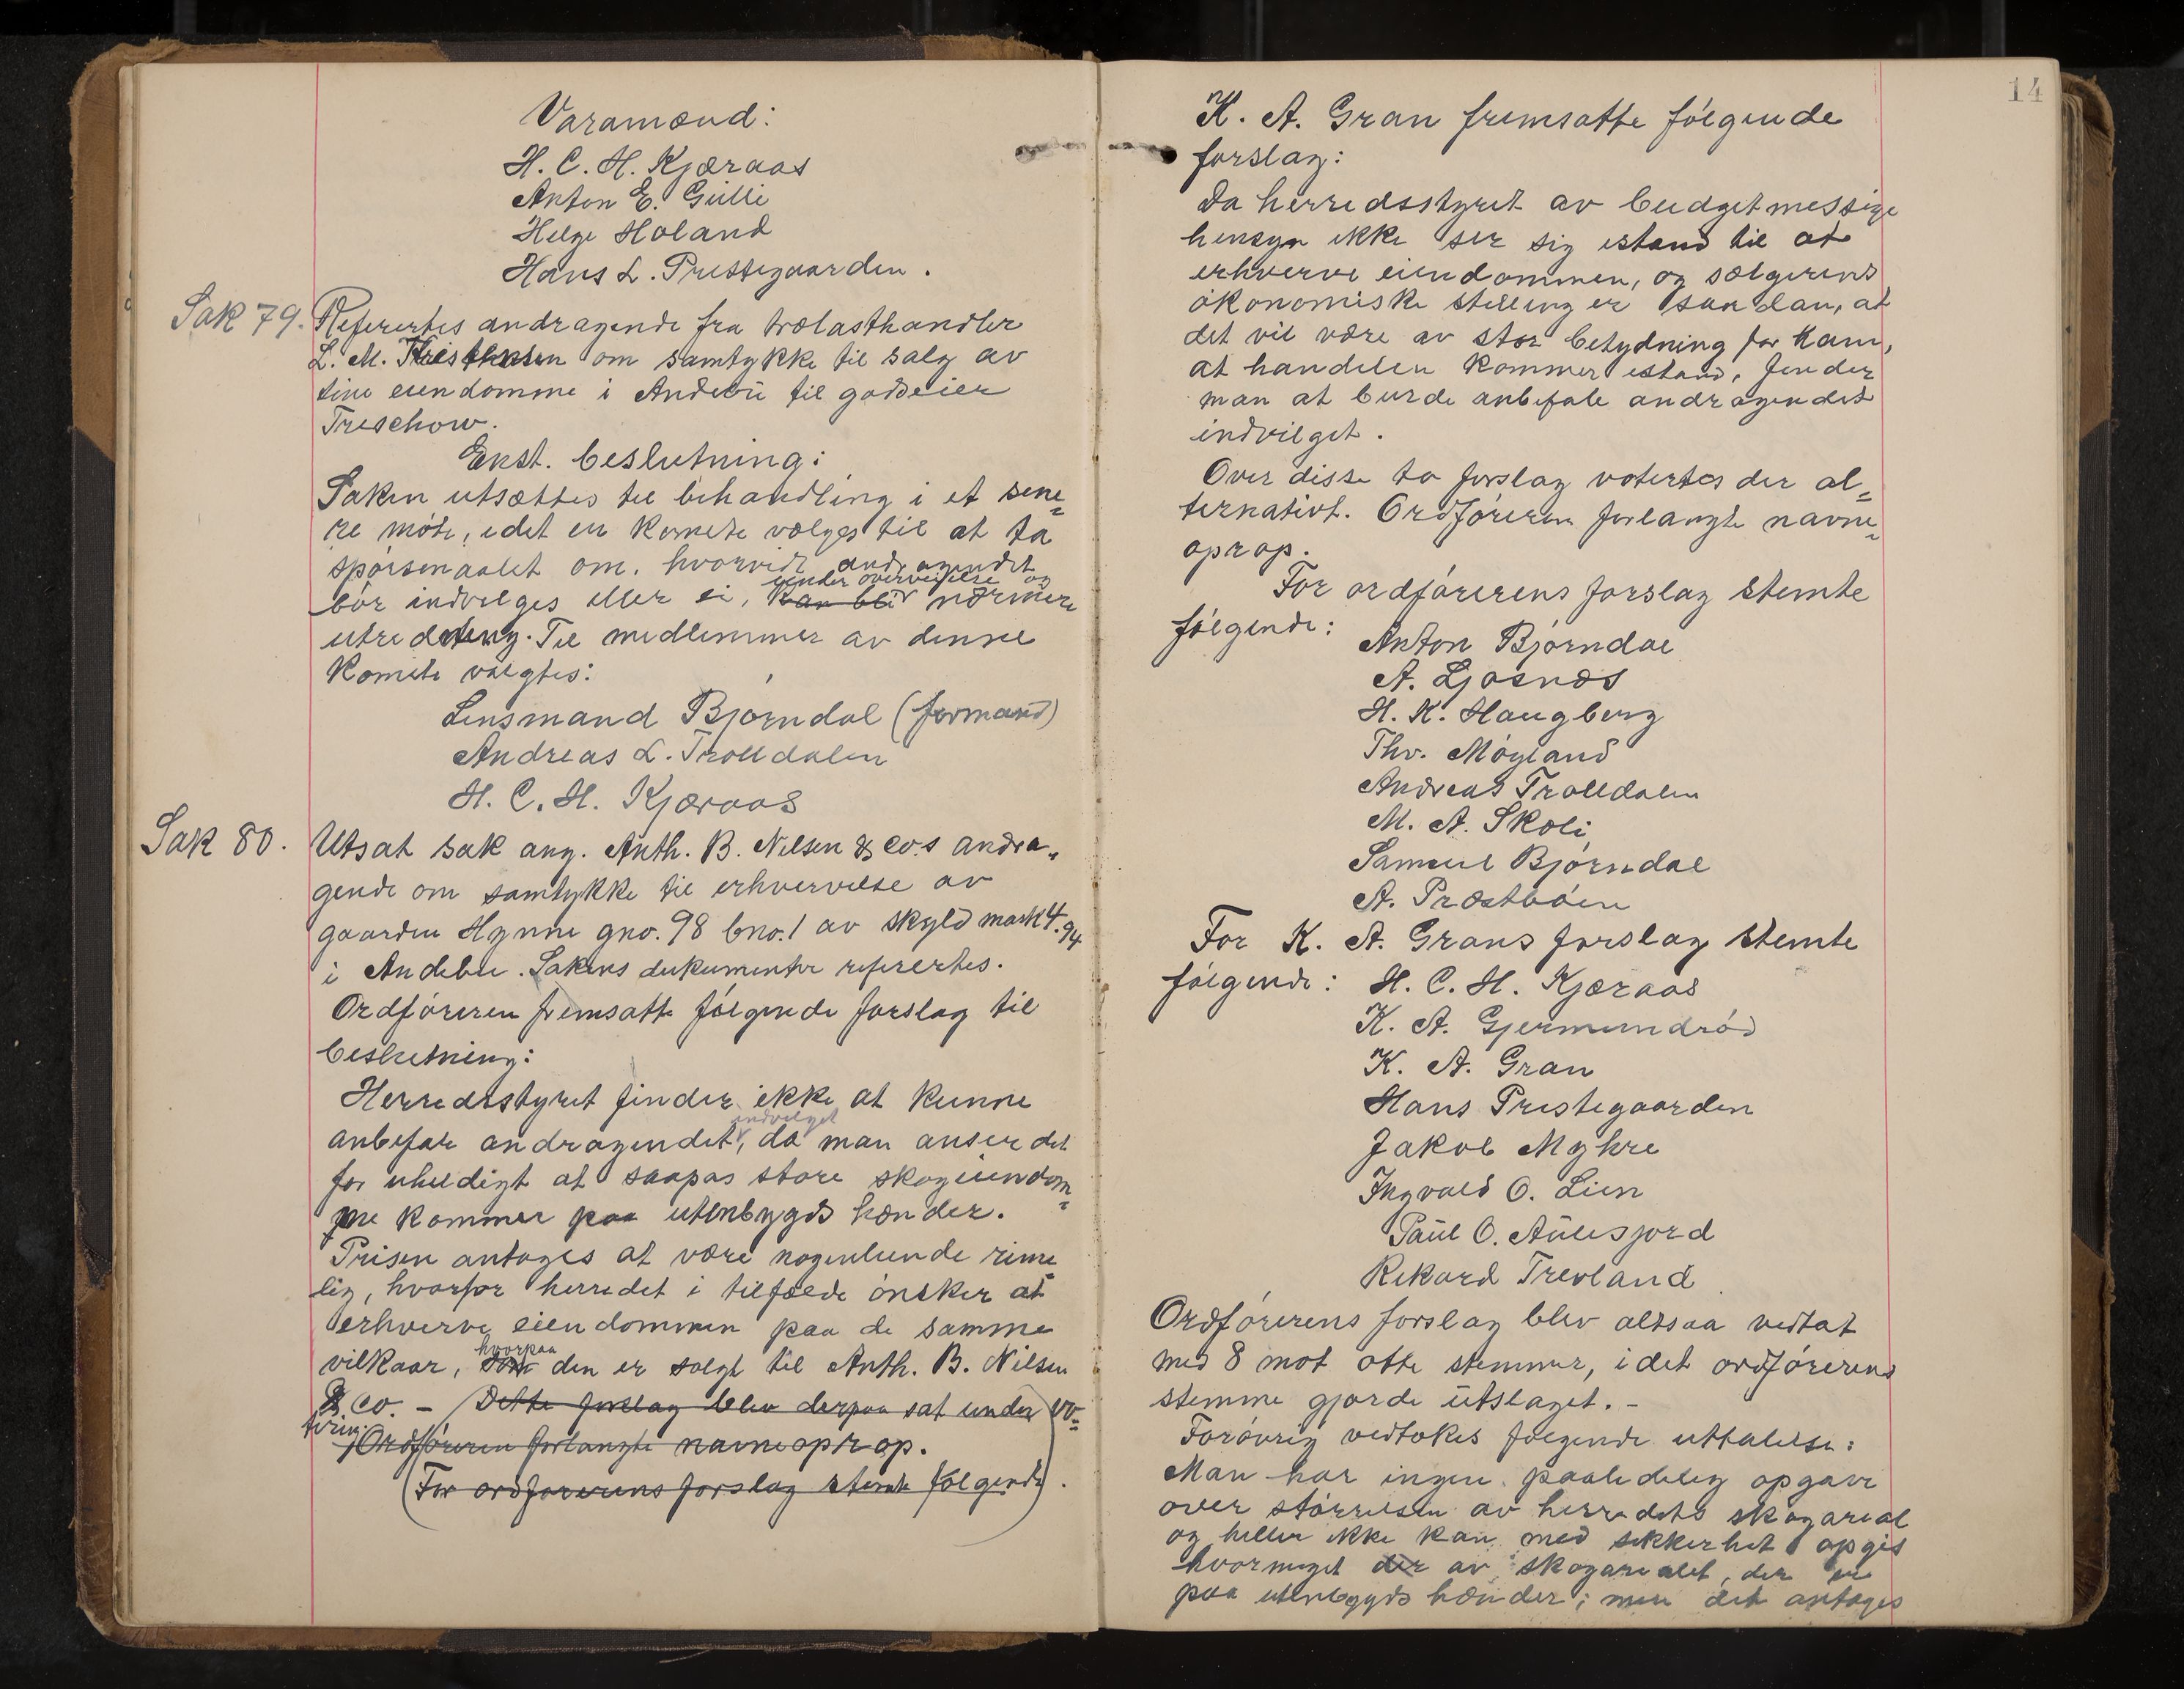 Varamænd:
H. C. H. Kjæraas
Anton E. Gulli
Helge Holand
Hans L. Prestegaarden.
Sak 79. Refertes andragende fra trælasthandler
L. M. om samtykke til salg av
sine eiendomme i Andebu til godseier
Treschow.
Enst. beslutning:
Saken utsættes til behandling i et sene=
re møte, idet en komite vælges til at ta
spørsmaalet om, hvorvidt andragendet
under overveielse og
bør indvilges eller ei, kan bli nærmere
utredning. Til medlemmer av denne
komite valgtes:
Lensmand Bjørndal (formand)
Andreas L. Trolldalen
H. C. H. Kjæraas
Sak 80. Utsat sak ang. Anth. B. Nilsen & Co.s andra=
gende om samtykke til erhvervelse av
gaarden Hynne gno. 98 bno. 1 av skyld mark 4.94
i Andebu. Sakens dokumenter refertes.
Ordføreren fremsatte følgende forslag til
beslutning:
Herredsstyret finder ikke at kunne
indvilget
anbefale andragendet, da man anser det
for uheldigt at saapas store skogeiendom=
me kommer paa utenbygds hænder.
Prisen antages at være nogenlunde rime=
lig, hvorfor herredet i tilfælde ønsker at
erhverve eiendommen paa de samme
hvorpaa
vilkaar, som den er solgt til Anth. B. Nilsen
& Co. - Dette forslag blev derpaa sat under vo=
tering.
Ordføreren forlangte navneoprop.
(For ordførerens forslag stemte følgende).
14
K. A. Gran fremsatte følgende
forslag:
Da herredsstyret av budgetmessige
hensyn ikke ser sig istand til at
erhverve eiendommen, og sælgerens
økonomiske stilling er saadan, at
det vil være av stor betydning for ham,
at handelen kommer istand, finder
man at burde anbefale andragendet
indvilget.
Over disse to forslag votertes der al=
ternativt. Ordføreren forlangte navne=
oprop.
For ordførerens forslag stemte
følgende: Anton Bjørndal
A. Ljosnæs
H. K. Haugberg
Thv. Møyland
Andreas Trolldalen
M. A. Skoli
Samuel Bjørndal
A. Præstbøen
For K. A. Grans forslag stemte
følgende: H. C. H. Kjæraas
K. A. Gjermundrød
K. A. Gran
Hans Prestegaarden
Jakob Myhre
Ingvald O. Lien
Paul O. Aulesjord
Rikard Trevland
Ordførerens forslag blev altsaa vedtat
med 8 mot otte stemmer, idet ordførerens
stemme gjorde utslaget. -
Forøvrig vedtokes følgende uttalelse:
Man har ingen paalidelig opgave
over størrelsen av herredets skogareal
og heller ikke kan med sikkerhet opgis
hvormeget der av skogarealet, der er
paa utenbygds hænder; men det antages